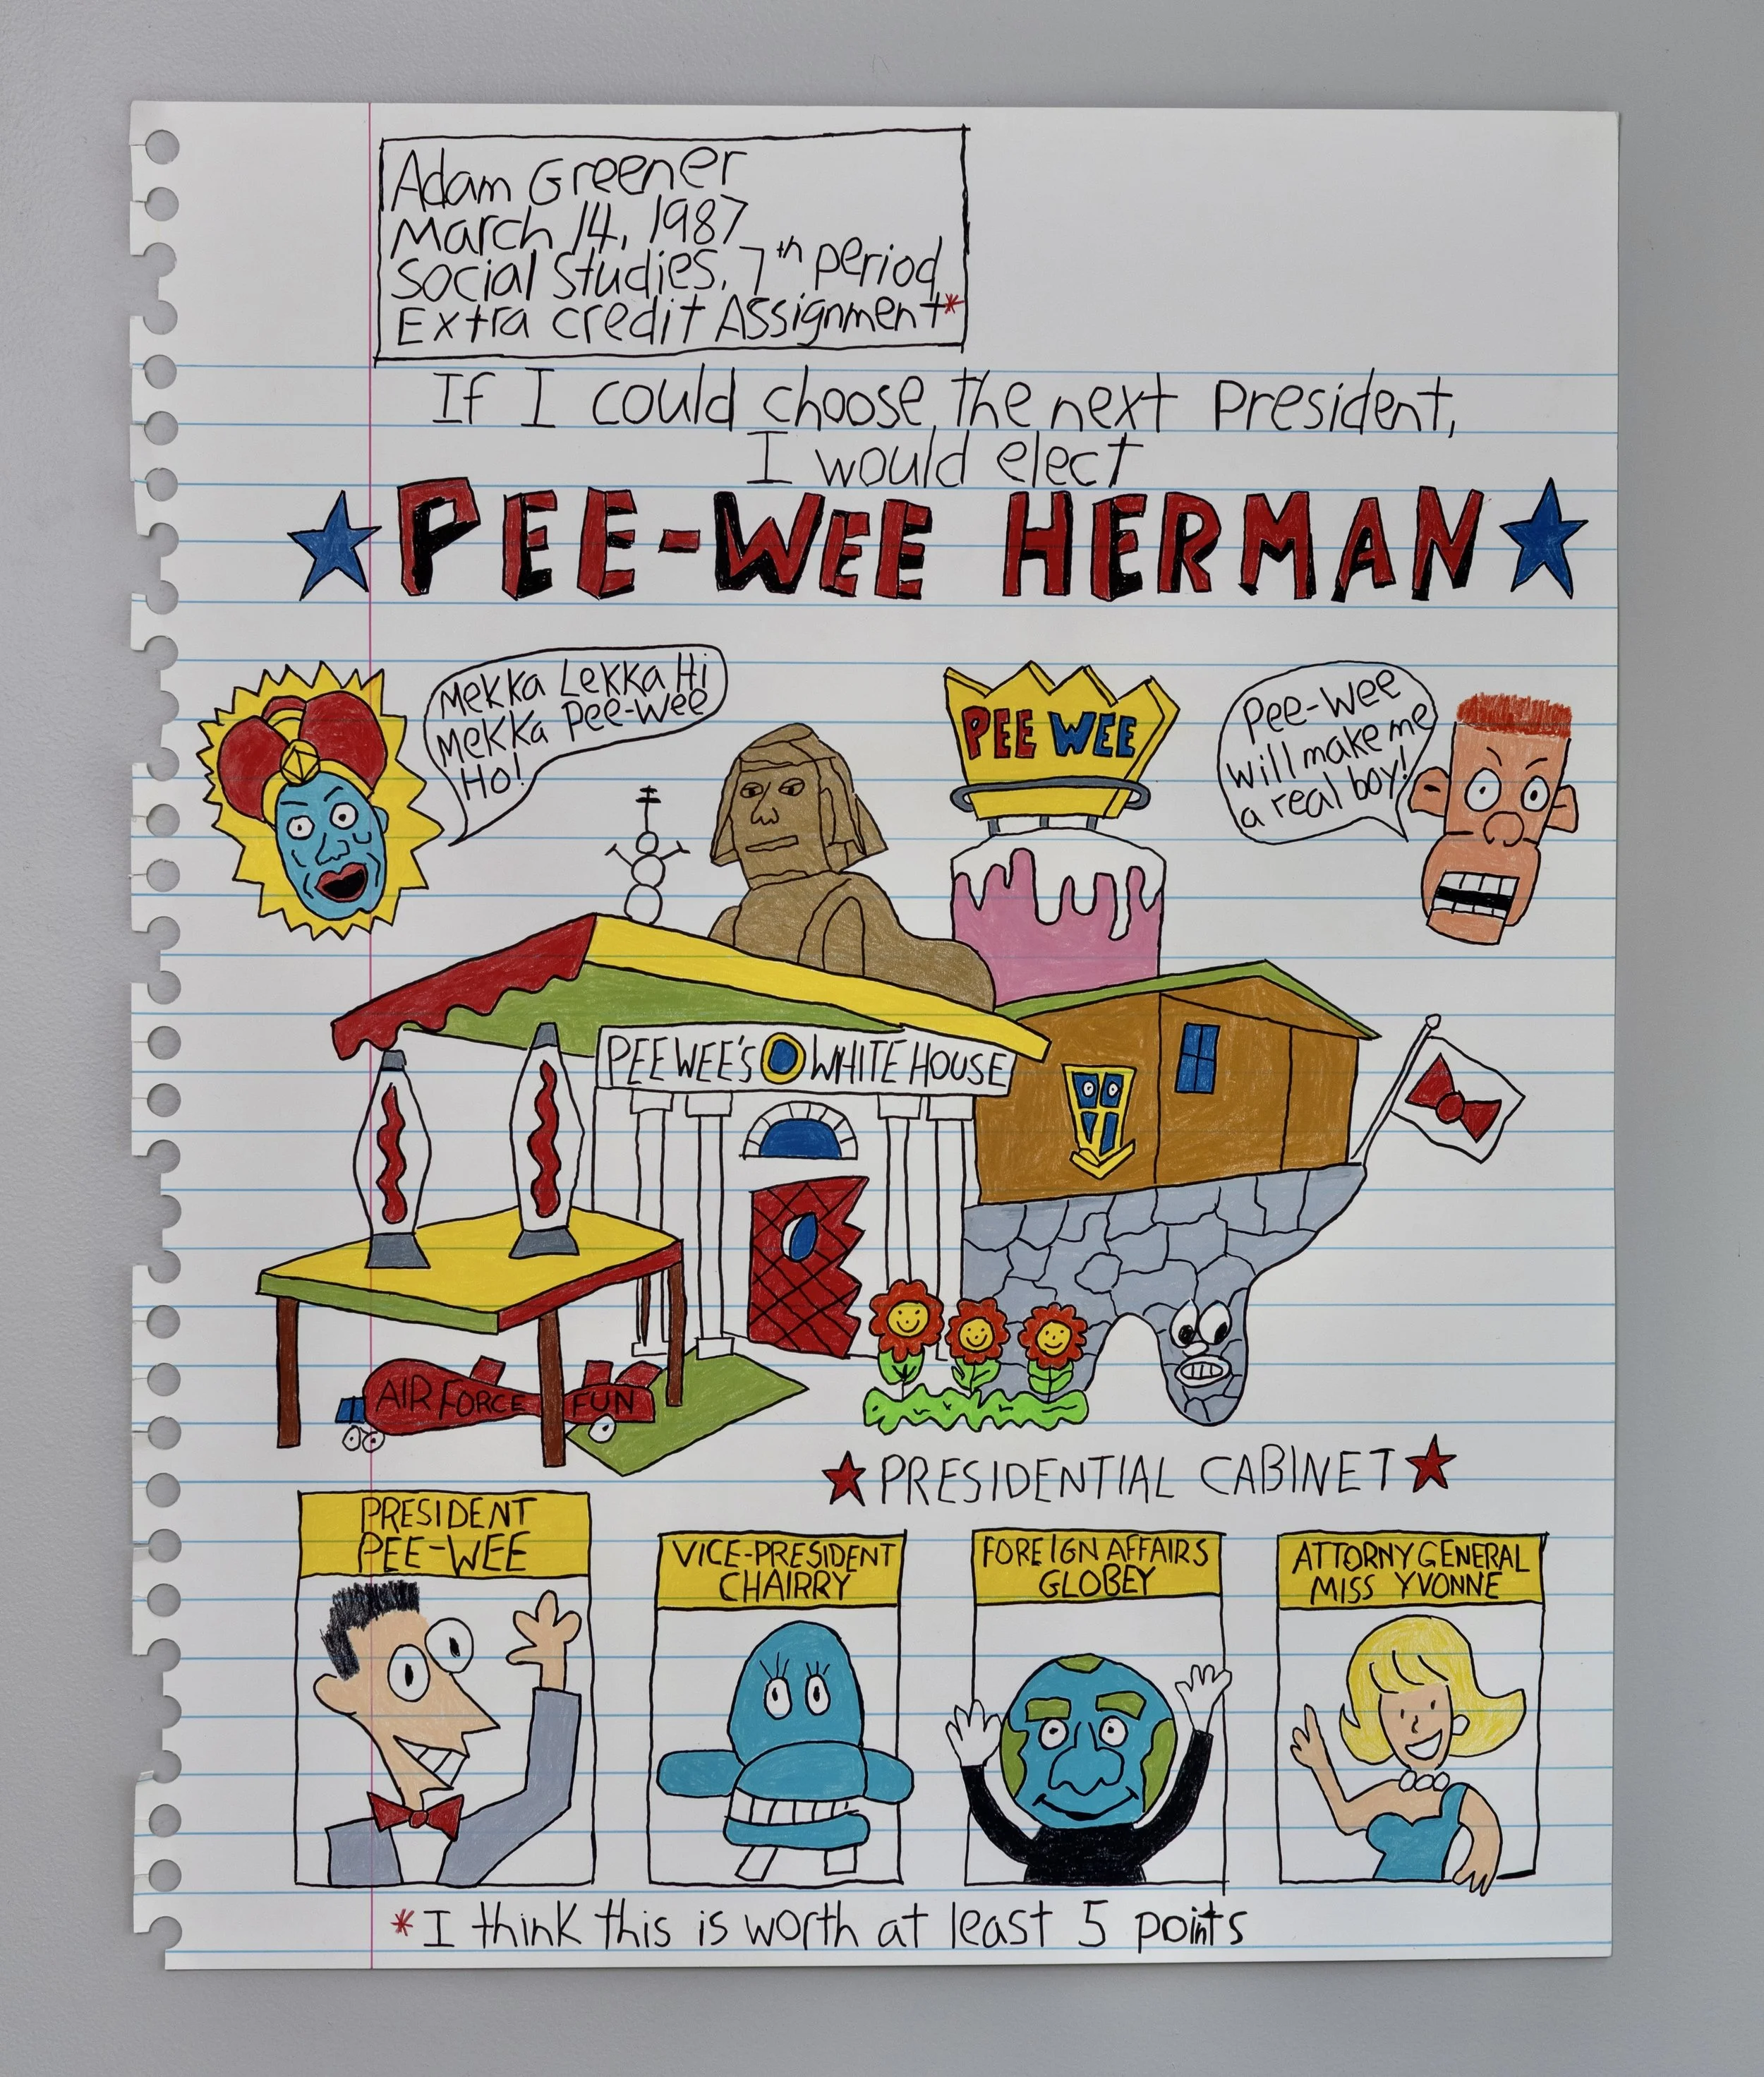 Adam Greener
March 14, 1987
Social Studies, 7th period
Extra credit Assignment*
If I could choose the next president,
I would elect
PEE-WEE HERMAN
Mekka Lekka Hi
Mekka Pee-wee
Ho!
PEE WEE
Pee-wee
will make me
a real boy!
PEEWEE'S WHITE HOUSE
AIR FORCE FUN
PRESIDENTIAL CABINET
PRESIDENT
PEE-WEE
VICE-PRESIDENT
CHAIRRY
FOREIGN AFFAIRS
GLOBEY
ATTORNY GENERAL
MISS YVONNE
*I think this is worth at least 5 points